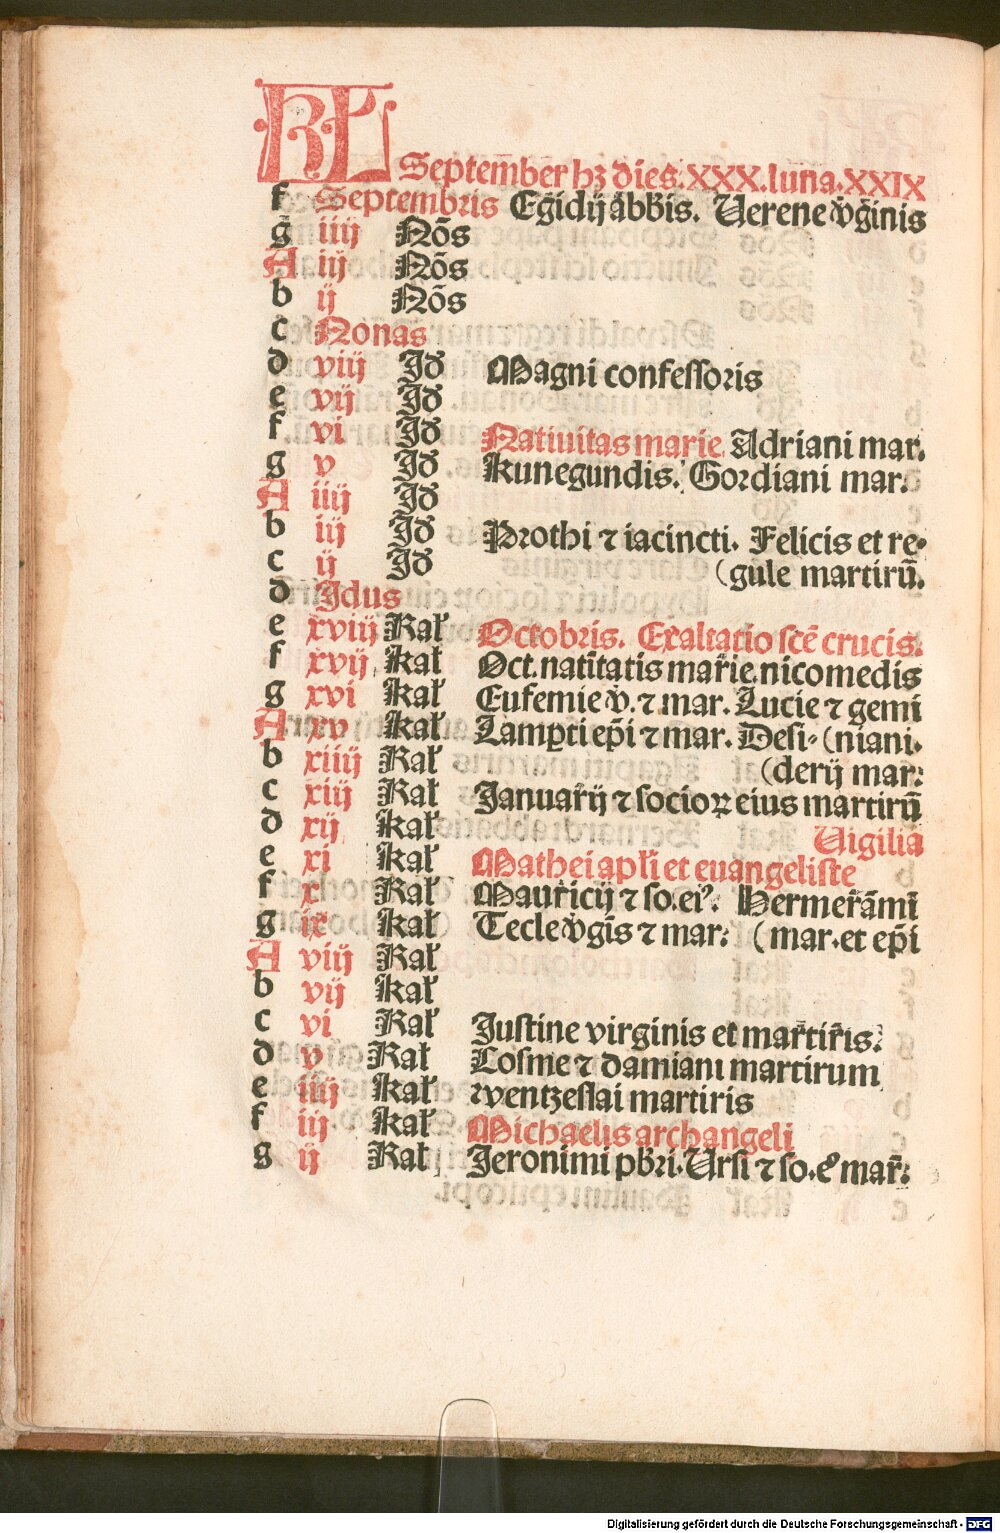 KL September hꝫ dies. XXX. luna. XXIX
f Septembris Egidij abb̄is. Uerene v̄gīnis
g iiij Nōs
A iij Nōs
b ij Nōs
c Nonas
d viij Id Magni confessoris
e vij Id
f vi Id Natiuitas marie Adriani mar.
g v Id Kunegundis. Gordiani mar.
A iiij Id
b iij Id Prothi ⁊ iacincti. Felicis et re-
c ij Id (gule martirū.
d Idus
e xviij Kal̓ Octobris. Exaltatio sc̄e crucis.
f xvij kal̓ Oct. natīītatis mar̄ie. nicomedis
g xvi kal̓ Eufemie v̄. ⁊ mar. Lucie ⁊ gemi
A xv kal̓ Lamꝑti ep̄i ⁊ mar. Desi- (niani.
b xiiij Kal̓ (derij mar:
c xiij Kal Januar̄ij ⁊ socioꝝ eius martirū
d xij kal̓ Uigilia
e xi kal̓ Mathei apl̄i et euangeliste
f x Kal̓ Maur̄icij ⁊ so. ei⁹. Hermer̄āmī
g ix kal̓ Tecle v̄gīs ⁊ mar: (mar. et ep̄i
A viij Kal̓
b vij kal̓
c vi Kal̓ Justine virginis et mar̄tir̄is.
d v Kal Cosme ⁊ damiani martirum
e iiij kal̓ wentzeslai martiris
f iij kal̓ Michaelis archangeli
g ij Kal Jeronimi pb̄ri. Ursi ⁊ so. eꝰ mar̄:
Digitalisierung gefördert durch die Deutsche Forschungsgemeinschaft - DFG